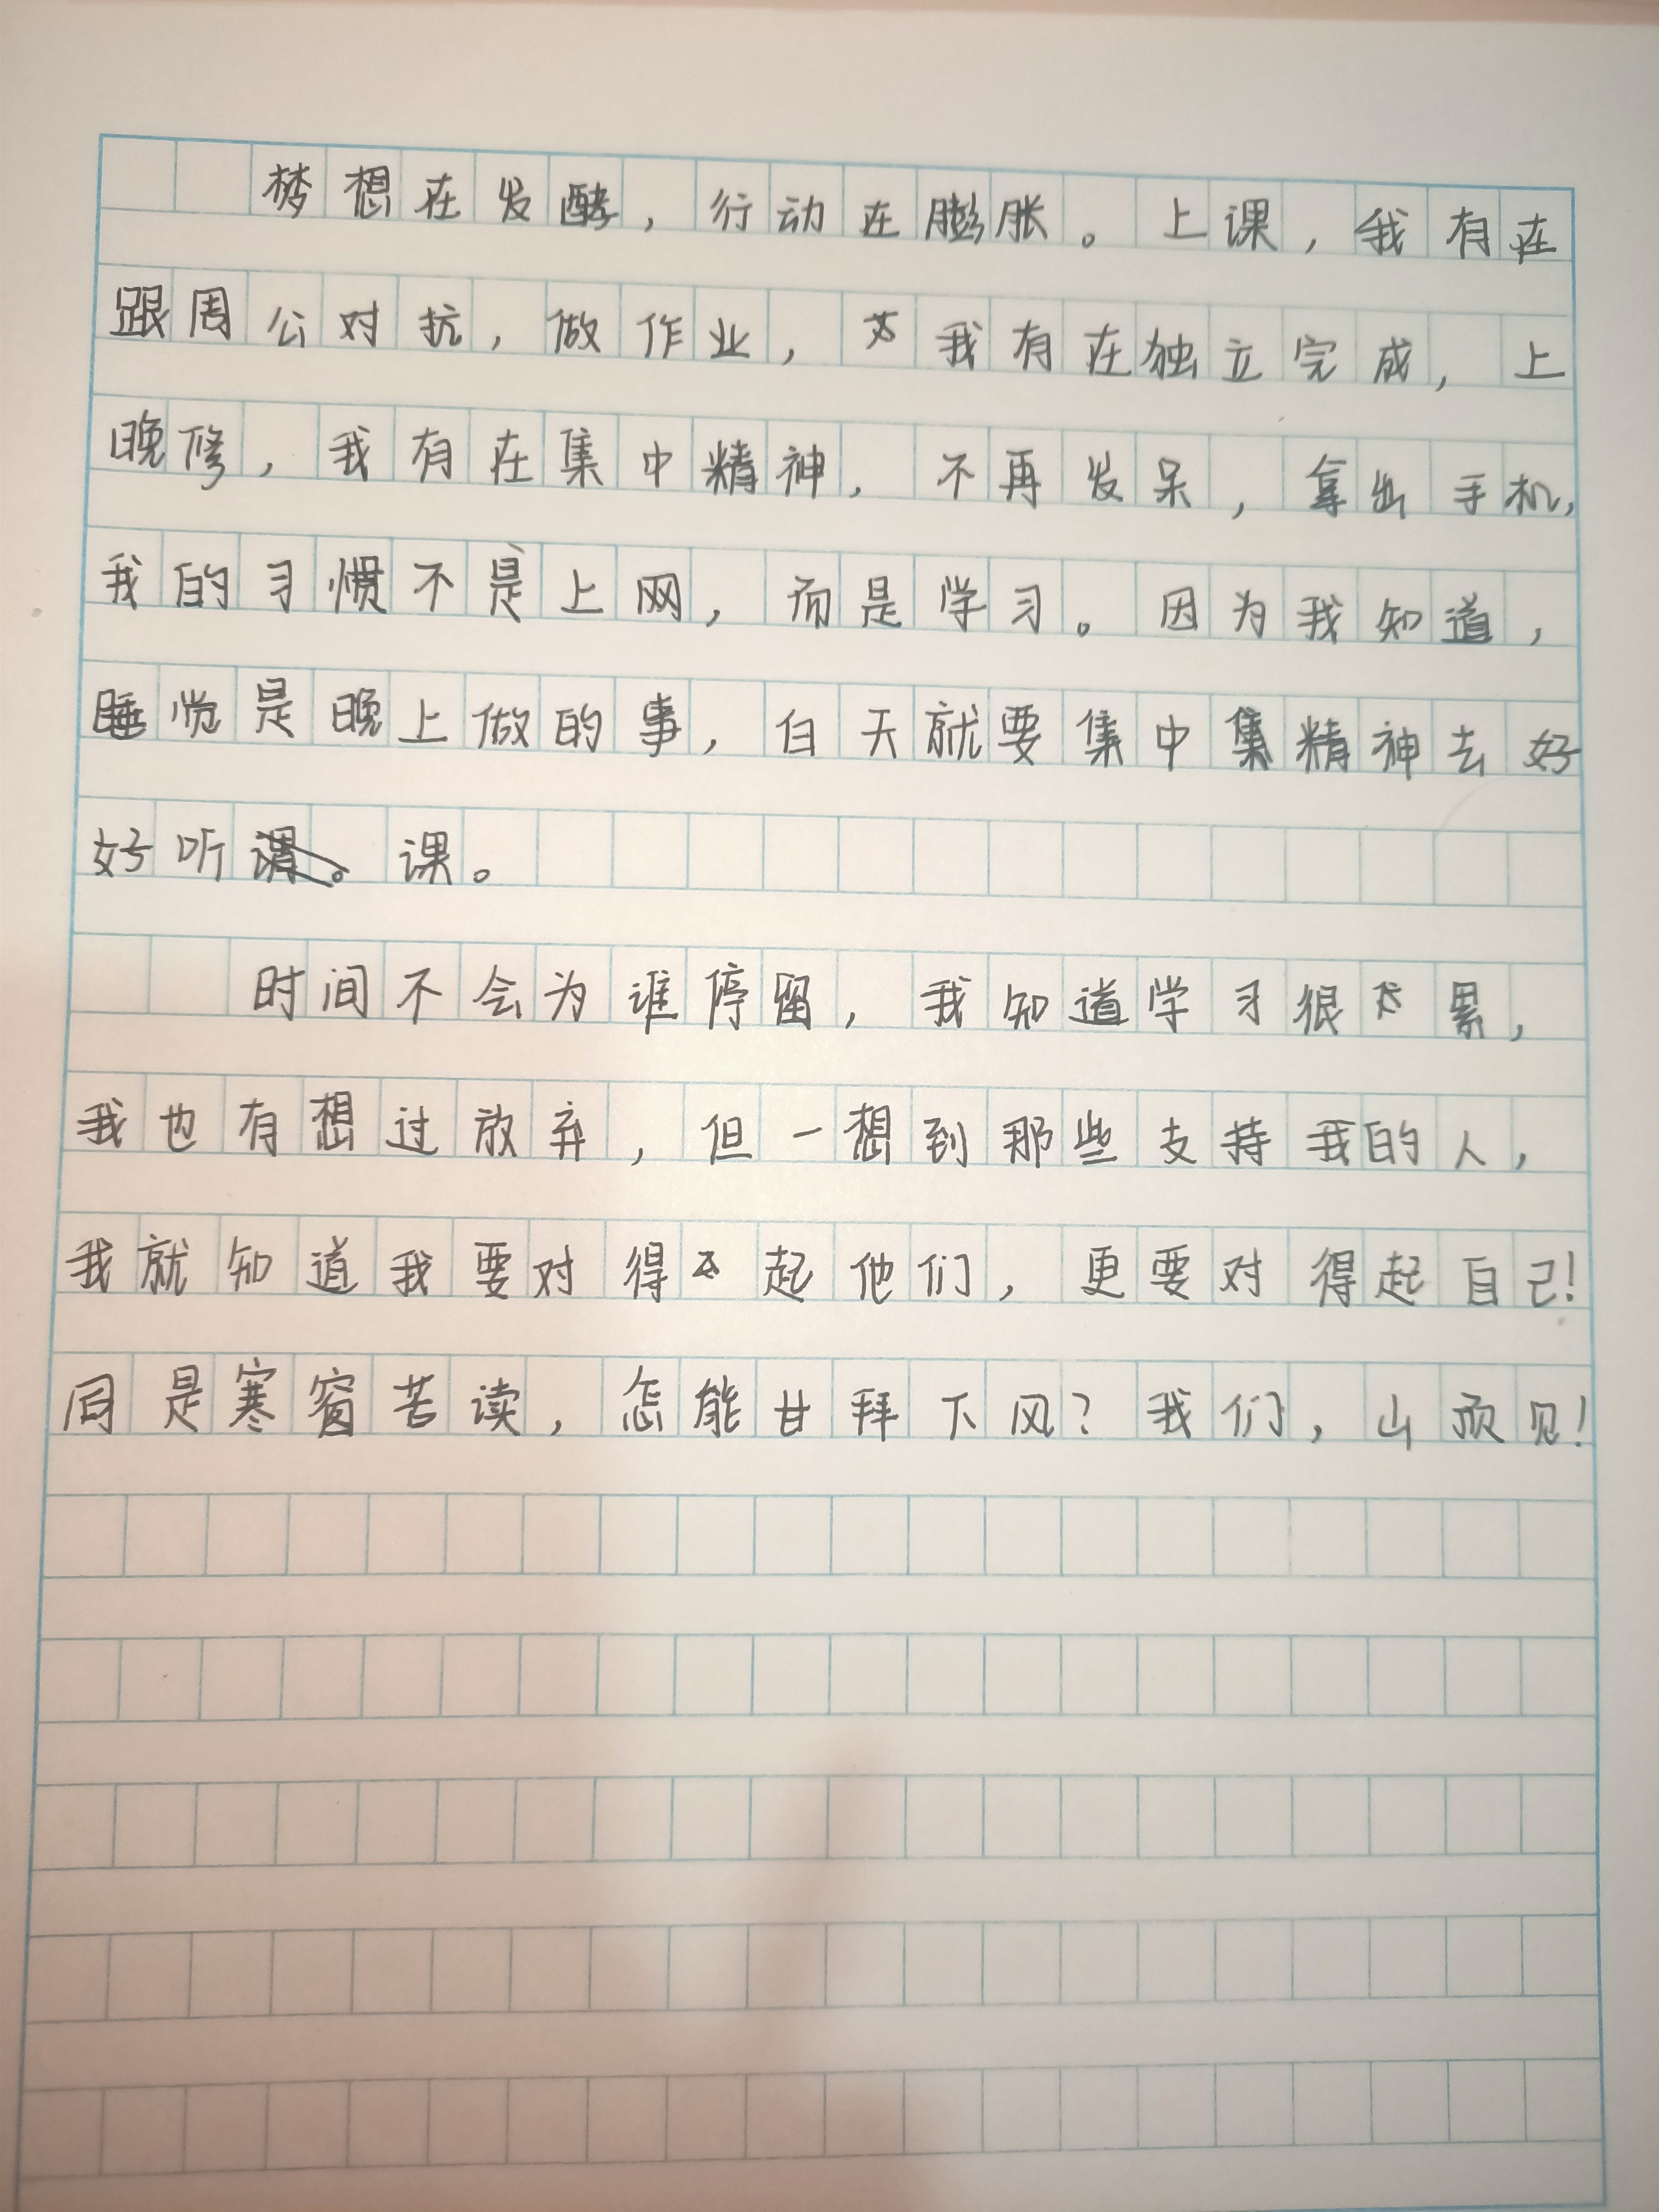 梦想在发酵，行动在膨胀。上课，我有在
跟周公对抗，做作业，我有在独立完成，上
晚修，我有在集中精神，不再发呆，拿出手机，
我的习惯不是上网，而是学习。因为我知道，
睡觉是晚上做的事，白天就要集中精神去好
好听课。
时间不会为谁停留，我知道学习很累，
我也有想过放弃，但一想到那些支持我的人，
我就知道我要对得起他们，更要对得起自己！
同是寒窗苦读，怎能甘拜下风？我们，山顶见！